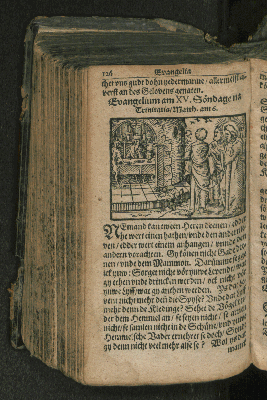 126 Evangelia
vns gudt dohn yedermanne / allermeist
verst an des Gelovens genaten.
Evangelium am XV. Söndage na
Trinitatis / Matth. am 6.
NEmand kan twen Heren denen /
he wert einen haten / vnde den andern
ven / edder wert einem anhangen / vnde den
andern vorachten. Gy können nicht Gade
nen / vnde dem Mammon. Darümme segge
ick yuw: Sorget nicht vör yuwe Levendt / wat
gy ethen vnde drincken werden / ock nicht vör
yuwe Lyff / wat gy anthen werden.
nicht mehr den de Spyse? Vnde dat
mehr denn de Kledinge? Sehet de Vögel
der dem Hemmel an / se seyen nicht / se arnen
nicht / se samlen nicht in de Schüne / vnd yuwe
Hemmelsche Vader erneret se doch.
gy denn nicht veel mehr alse se?